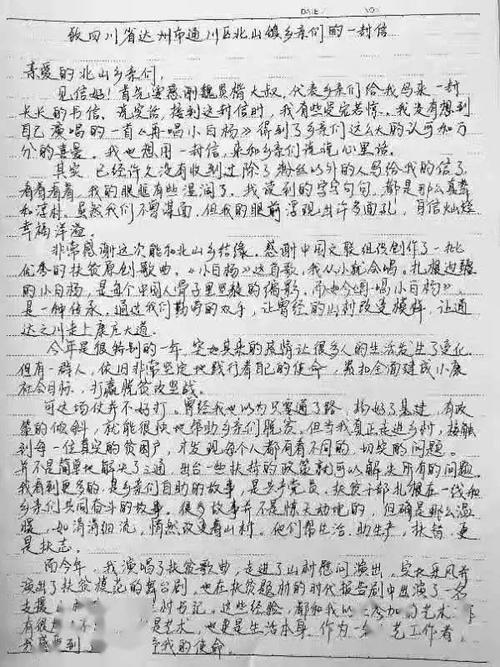 DATE
致四川省达州市通川区北山镇乡亲们的一封信
亲爱的北山乡亲们,
见信好!首先要感谢魏昌楷大叔,代表乡亲们给我写来一封
长长的书信。说实话,接到这封信时,我有些受宠若惊。我没有想到
自己演唱的一首《再唱小白杨》得到了乡亲们这么大的认可和万
分的喜爱。我也想用一封信,来和乡亲们说说心里话。
其实,已经许久没有收到过除了粉丝以外的人写给我的信了,
看着看着,我的眼眶有些湿润了。我读到的字字句句,都是那么真挚
和淳朴。虽然我们不曾谋面,但我的眼前浮现出许多面孔,自信灿烂、
幸福洋溢。
非常感谢这次能和北山乡结缘。感谢中国文联组织创作了一批
优秀的扶贫原创歌曲。《小白杨》这首歌,我从小就会唱。扎根边疆
的小白杨,是每个中国人骨子里坚毅的缩影,而如今《再唱小白杨》,
是一种传承。通过我们勤劳的双手,让曾经的山村改变模样,让通
达之川走上康庄大道。
今年是很特别的一年,突如其来的疫情让很多人的生活发生了变化。
但有一群人,依旧非常坚定地践行着自己的使命,紧扣全面建成小康
社会目标,打赢脱贫攻坚战。
可这场仗并不好打。曾经我也以为只要通了路,搞好了基建,有政
策的倾斜,就能很快地帮助乡亲们脱贫。但当我真正走进乡村,接触
到每一位真实的贫困户,才发现每个人都有着不同的、切实的问题。
并不是简单地解决了三通,出台一些扶持的政策就可以解决所有的问题。
我看到更多的,是乡亲们自助的故事,是共产党员、扶贫干部扎根在一线和
乡亲们共同奋斗的故事。很多故事并不是惊天动地的,但确是那么温
暖,如涓涓细流,悄然改变着山村。他们帮生活、助生产,扶智、更
是扶志。
而今年,我演唱了扶贫歌曲,走进了山村慰问演出,
演出了扶贫模范的舞台剧,也在扶贫题材的时代报告剧中出演了一名
支援
村书记。这些经验,都和我以
艺术
有很大
是艺术,也更是生活本身。作为一
艺工作者,
我感受到了
我的使命。